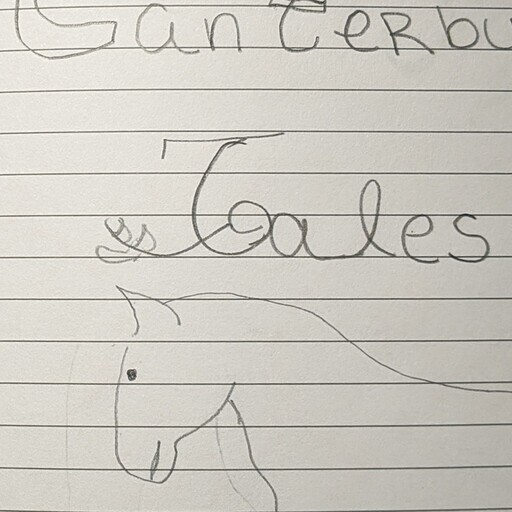 Canterbu
Tales